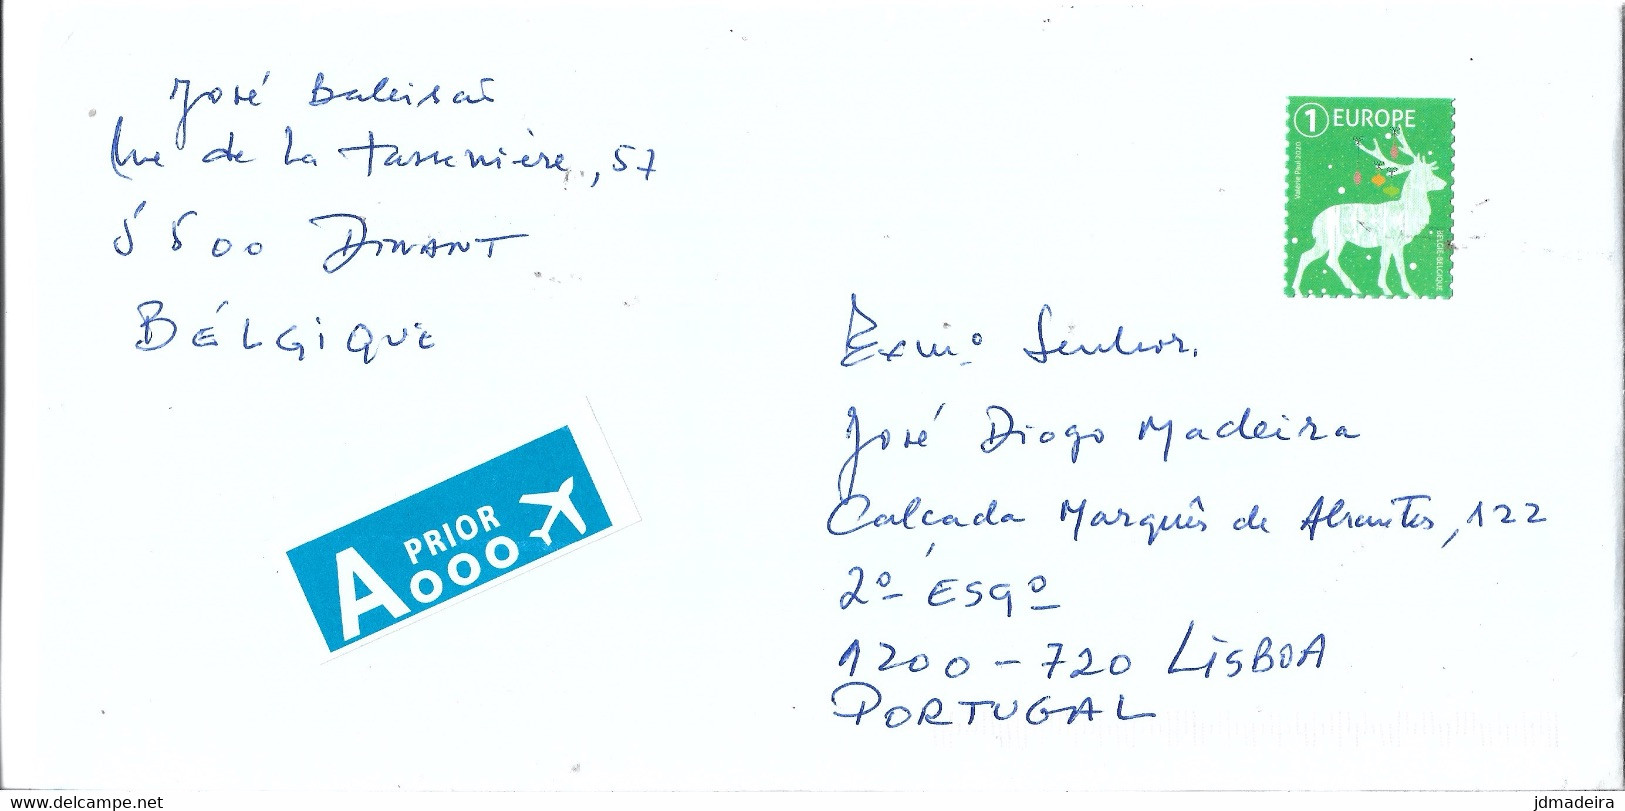 José Baleisaõ
Rue de La Tassenière, 57
5500 DINANT
BÉLGIQUE
A PRIOR
1 EUROPE
Valérie Paul 2020
BELGIE-BELGIQUE
Exmº Senhor.
José Diogo Madeira
Calçada Marquês de Abrantes, 122
2º ESQº
1200-720 LISBOA
PORTUGAL
www.delcampe.net
jdmadeira